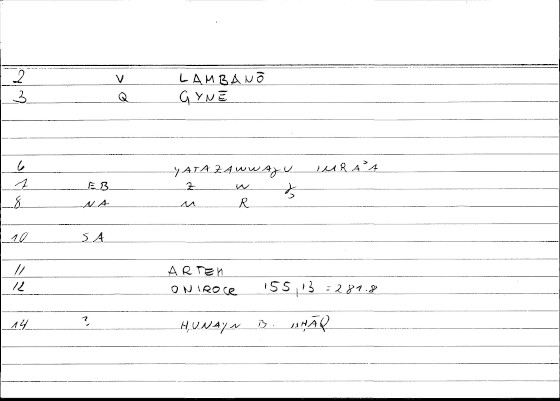 2 V LAMBANŌ
3 Q GYNĒ
6 YATAZAWWAǧU IMRAʾA
7 EB Z W ǧ
8 NA M R ʾ
10 SA
11 ARTEM
12 ONIROCR 155,13 = 281.8
14 ? ḤUNAYN B. ISḤĀQ